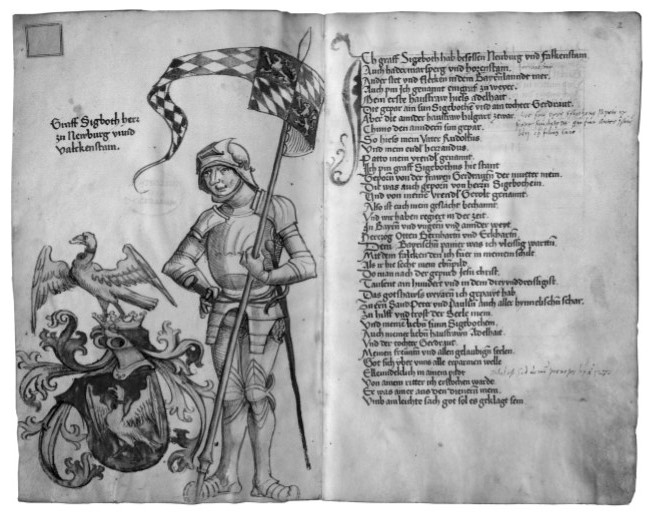 Graff Sigboth herr
zu Neuburg vnnd
Valckenstain.
2
Ich graff Sigeboth hab besessen Neuburg vnd falkenstam
Auch hadermarsperg vnd horenstam.
Ander stet vnd flecken in dem Bayerllannde mer.
Auch pin Ich genannt ein graf zu weyer.
Mein erste haussfraw hiess Adelhait
Die gepar ain sun Sigebothe vnd ain tochter Gerdraut.
Aber die annder haussfraw hilgart zwar
Chuno den anndern sun gepar.
So hiess mein Vater Rudolffus.
Vnd mein endl herrandus.
Patto mein vrendl genannt.
Ich pin graff Sigebothus hie stant
Geporn von der frawen Gerdrauten der muetter mein.
Die was auch geporn von herrn Sigebothem.
Vnd von meine vrendl Gerolt genannt.
Also ist euch mein geslächt bechannt.
Vnd wir haben regiert in der zeit.
Zu Bayrn vnd vngern vnd annder weyt
Hertzog Otten Bernharten vnd Eckharten
Dem Bayrischn panier was ich vleissig warttn.
Mit dem falcken den ich fuer in meinem schilt
Als ir hie secht mein ebnpild
Do man nach der gepurd Jesu christ.
Tausent ain hundert vnd in dem dreyunddreissigst.
Das gotshawss weyarn ich gepawt hab
Zu ern Sand Peter vnd Paulsn auch aller hymelischn schar.
Zu hilff vnd trost der Seele mein
Vnd meine liebn sunn Sigebothem.
Auch meiner liebn haussfrawn Adelhait.
Vnd der tochter Gerdraut.
Meinen freuntn vnd allen gelaubign seelen.
Got sich vber vnns alle erparmen welle
Ellenndeklich in ainem pehg
Von ainem ritter ich erstochen warde
Er was ainer aus den dienern mein.
Vmb ain leichte sach got sol es geklagt sein